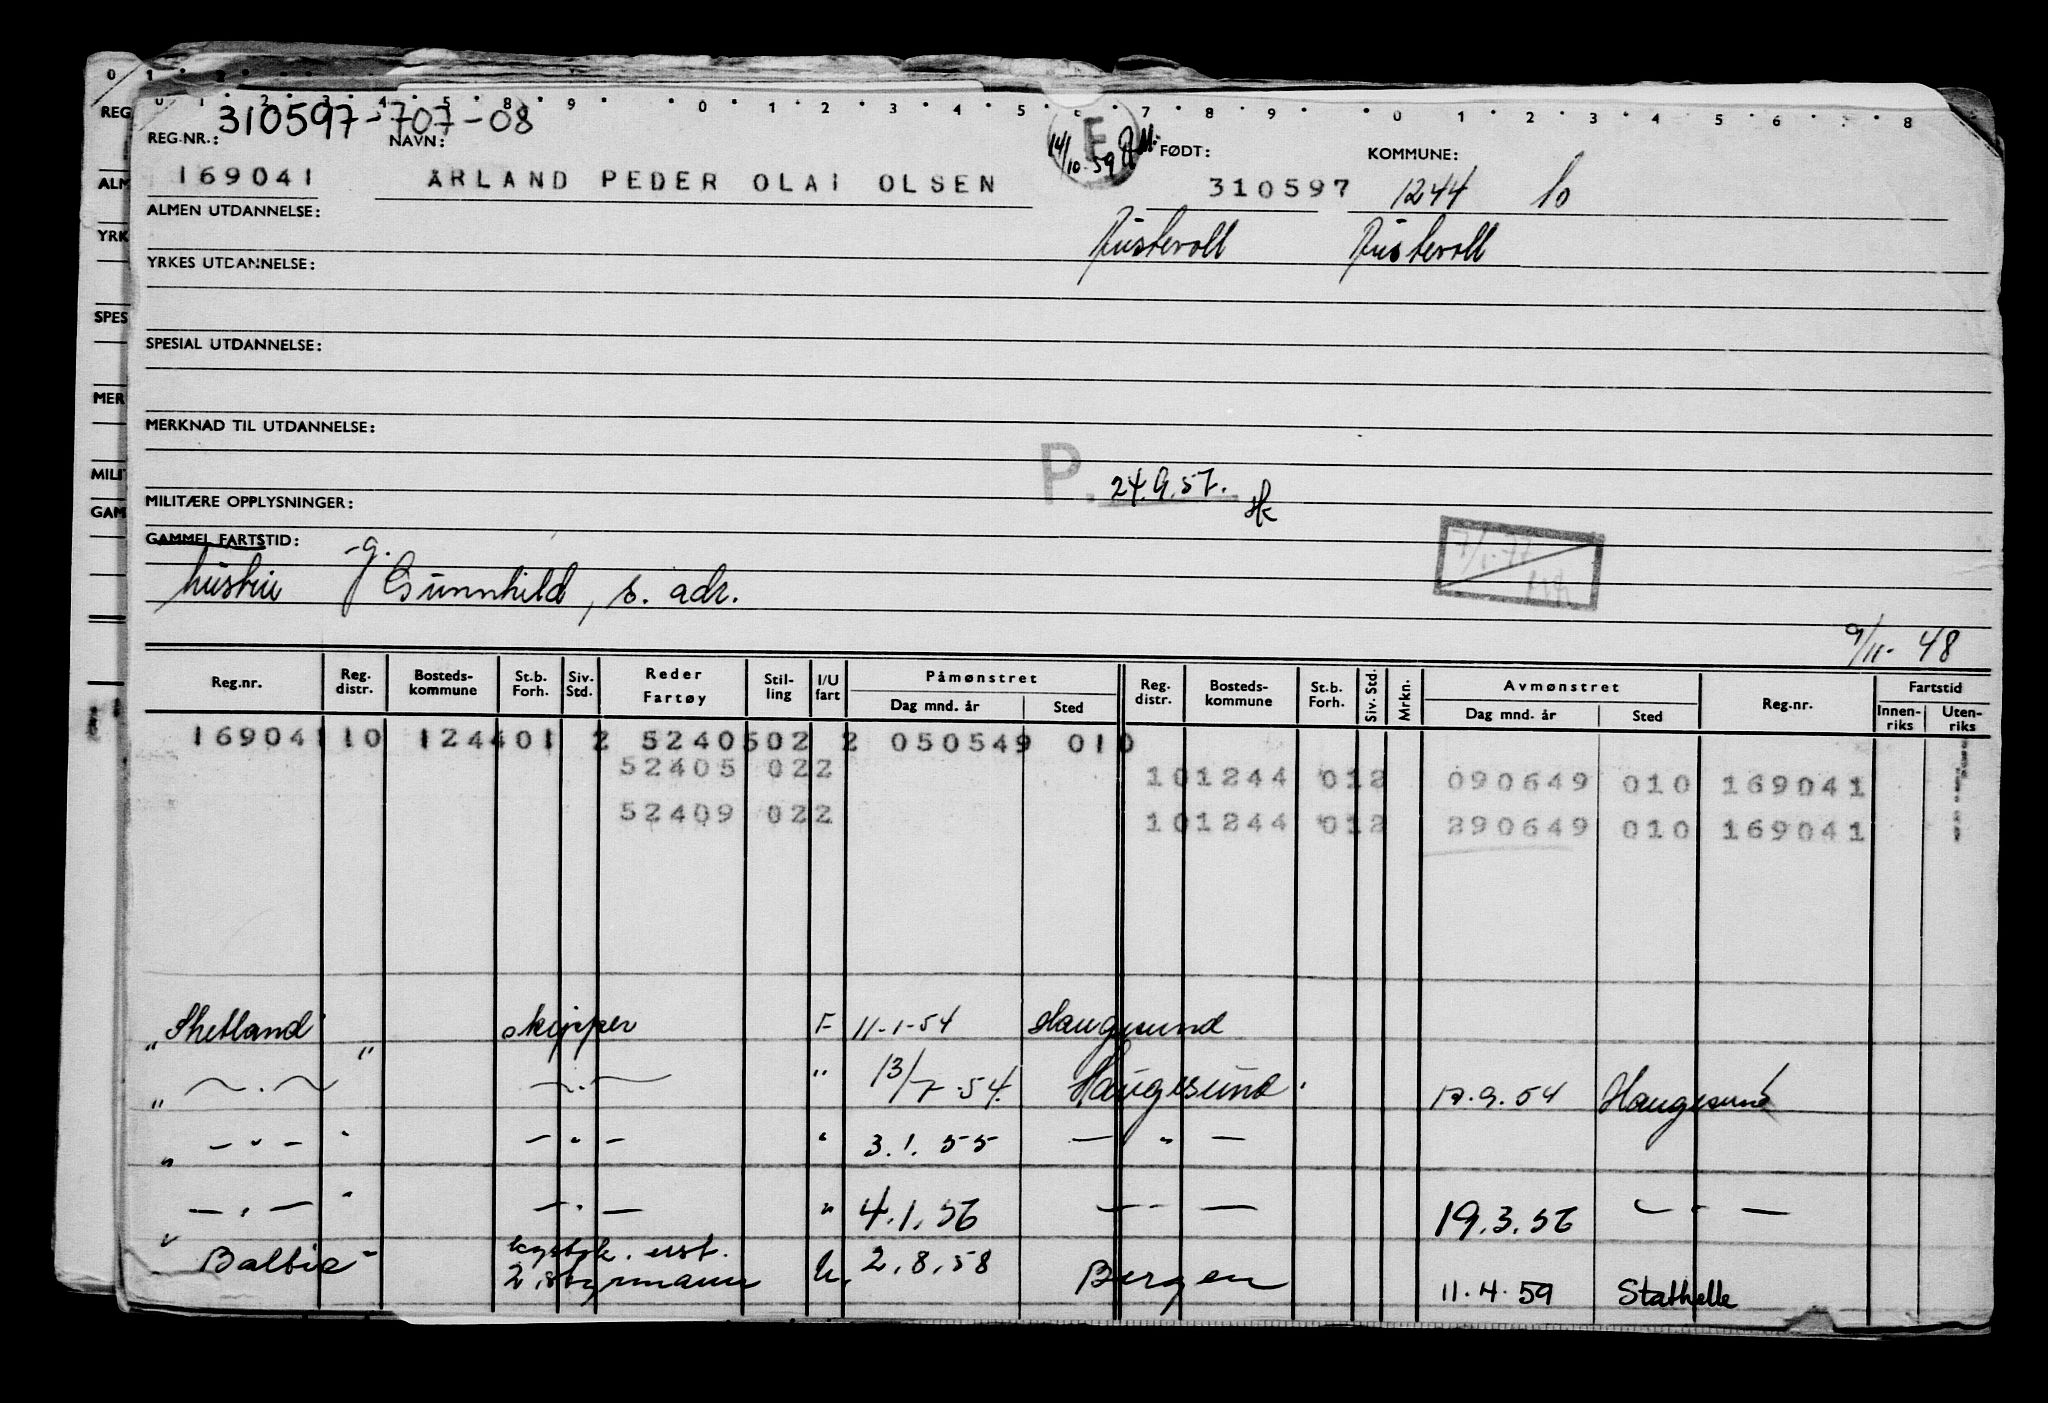 0 1 2
0 1 2 3 4 5 8 9 0 1 2 3 4 5 6 7 8 9 0 1 2 3 4 5 6 7 8
REG
REG.NR.: 310597-707-08
NAVN:
E
14/10.59
FØDT:
KOMMUNE:
ALM
169041 ÅRLAND PEDER OLAI OLSEN 310597 1244 10
ALMEN UTDANNELSE:
YRK
Austevoll Austevoll
YRKES UTDANNELSE:
SPES
SPESIAL UTDANNELSE:
MER
MERKNAD TIL UTDANNELSE:
MILIT
P. 24.9.57.
GAM
MILITÆRE OPPLYSNINGER:
GAMMEL FARTSTID:
-g.
hustru Gunnhild, s. adr.
9/11- 48
Reg.nr. Reg. distr. Bosteds-kommune St.b. Forh. Siv. Std. Reder Fartøy Stil-ling I/U fart Påmønstret Dag mnd. år Sted Reg. distr. Bosteds-kommune St.b. Forh. Siv. Std. Mrkn. Avmønstret Dag mnd. år Sted Reg.nr. Fartstid Innen-riks Uten-riks
169041 10 124401 2 5240502 2 050549 010
52405 022 101244 012 090649 010 169041
52409 022 101244 012 290649 010 169041
„Shetland" skipper F 11-1-54 Haugesund
„ ~.~ ~.~ " 13/7-54. Haugesund. 17.9.54 Haugesund
„ -"- " -"- " 3.1.55 -"-
„ -"- " -"- " 4.1.56 -"- 19.3.56 -"-
"Baltic" kystsk. 2. styrmann U. 2.8.58 Bergen 11.4.59 Stathelle